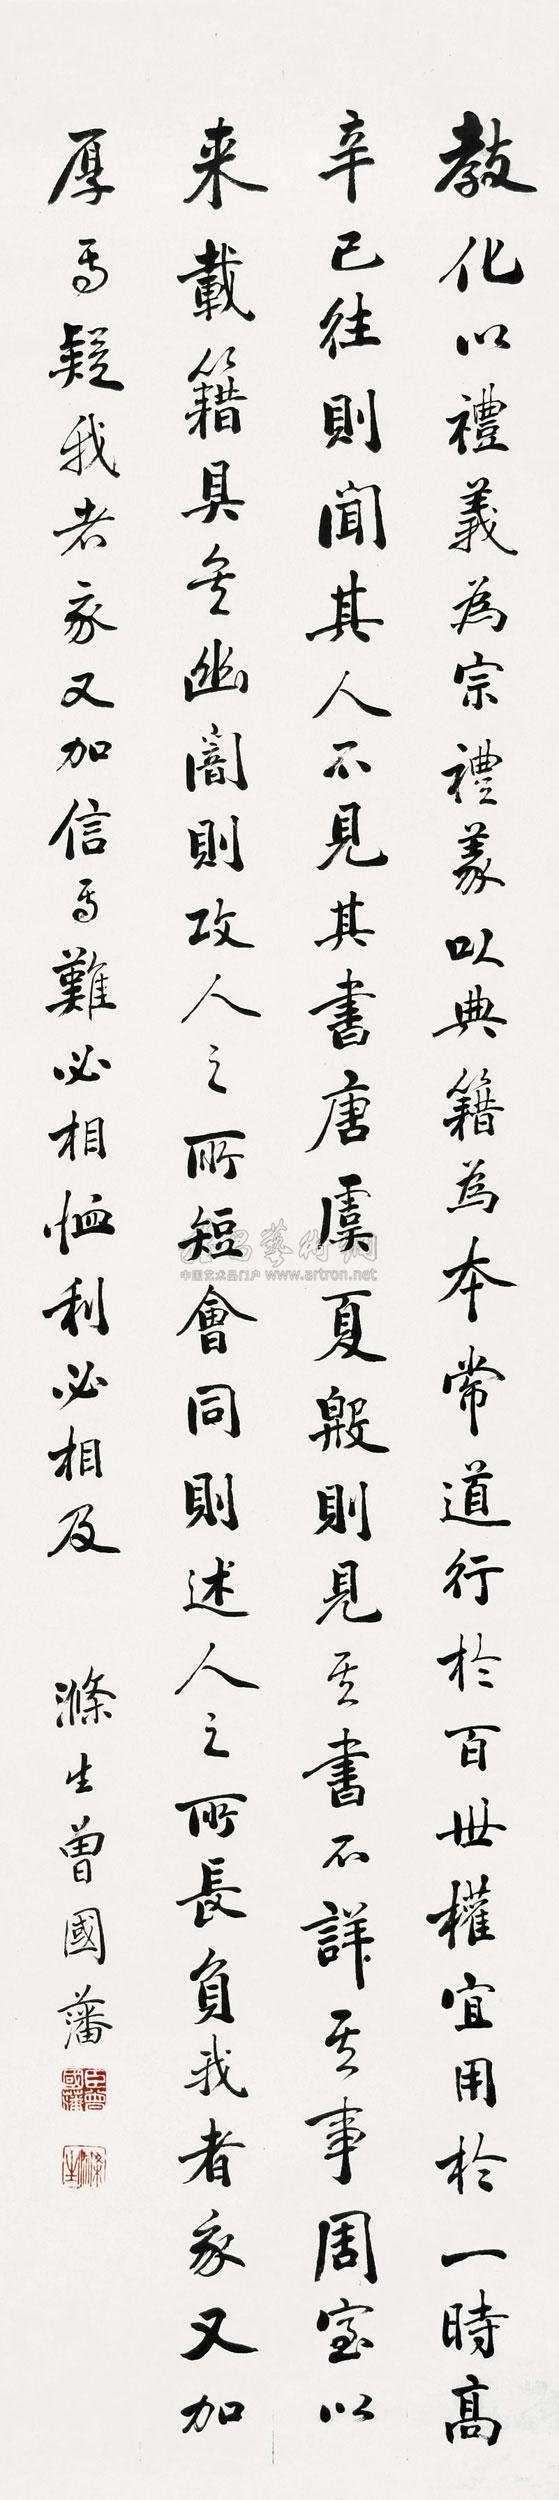 教化以禮義為宗禮義以典籍為本常道行於百世權宜用於一時高
辛已往則聞其人不見其書唐虞夏殷則見其書不詳其事周室以
来載籍具矣幽闇則攻人之所短會同則述人之所長負我者家又加
厚焉疑我者家又加信焉難必相恤利必相及
滌生曾國藩
臣曾國藩
滌生
中国艺术品门户 www.artron.net